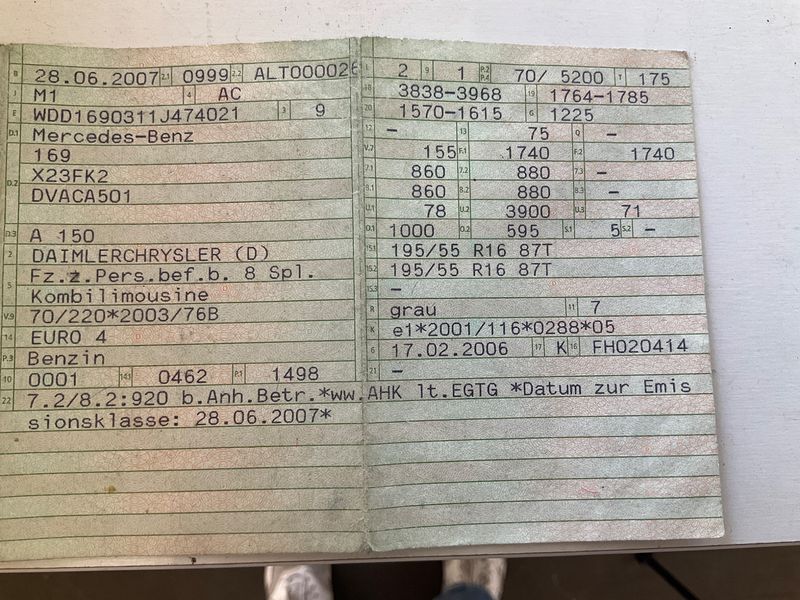 B 28.06.2007 2.1 0999 2.2 ALT000026
J M1 4 AC
E WDD1690311J474021 3 9
D.1 Mercedes-Benz
169
D.2 X23FK2
DVACA501
D.3 A 150
2 DAIMLERCHRYSLER (D)
5 Fz.z.Pers.bef.b. 8 Spl.
Kombilimousine
V.9 70/220*2003/76B
14 EURO 4
P.3 Benzin
10 0001 14.1 0462 P.1 1498
L 2 9 1 P.2 P.4 70/ 5200 T 175
18 3838-3968 19 1764-1785
20 1570-1615 G 1225
12 – 13 75 Q –
V.7 155 F.1 1740 F.2 1740
7.1 860 7.2 880 7.3 –
8.1 860 8.2 880 8.3 –
U.1 78 U.2 3900 U.3 71
O.1 1000 O.2 595 S.1 5 S.2 –
15.1 195/55 R16 87T
15.2 195/55 R16 87T
15.3 –
R grau 11 7
K e1*2001/116*0288*05
6 17.02.2006 17 K 16 FH020414
21 –
22 7.2/8.2:920 b.Anh.Betr.*ww.AHK lt.EGTG *Datum zur Emis
sionsklasse: 28.06.2007*